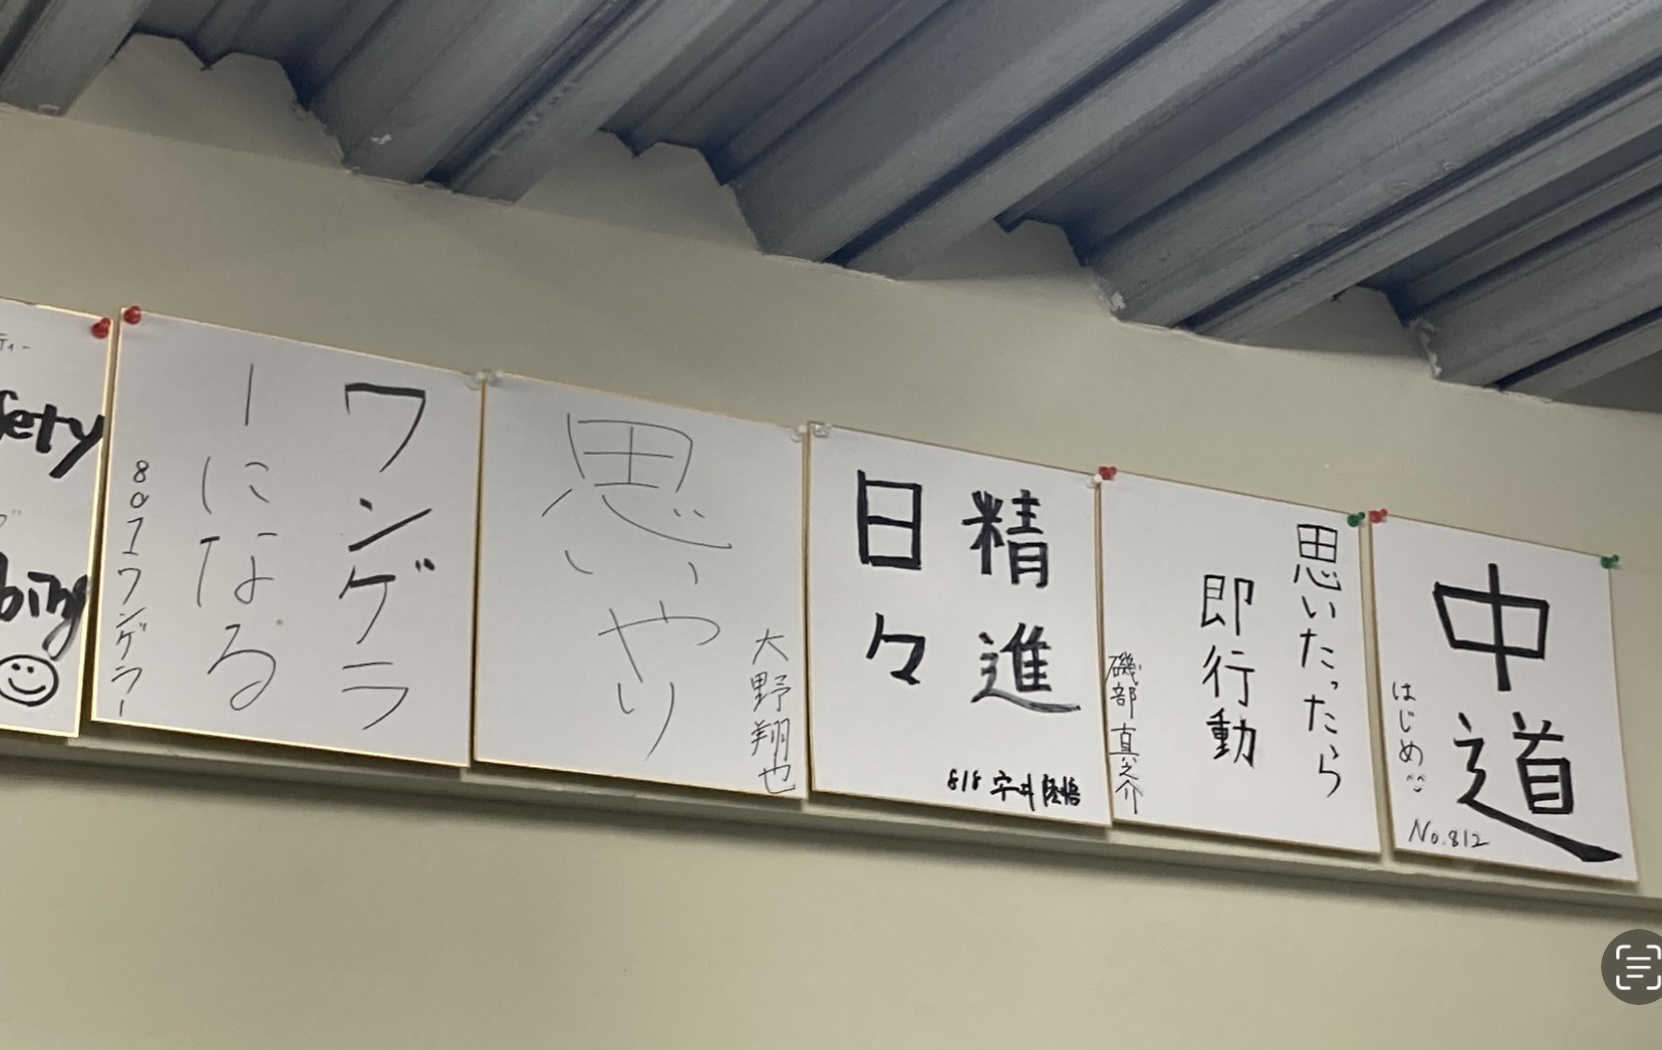 中道
はじめ
No.812
思いたったら
即行動
磯部真之介
精進
日々
818 安井
大野翔也
思いやり
ワンゲラ
ーになる
801ワンゲラー
ティー
fety
bing